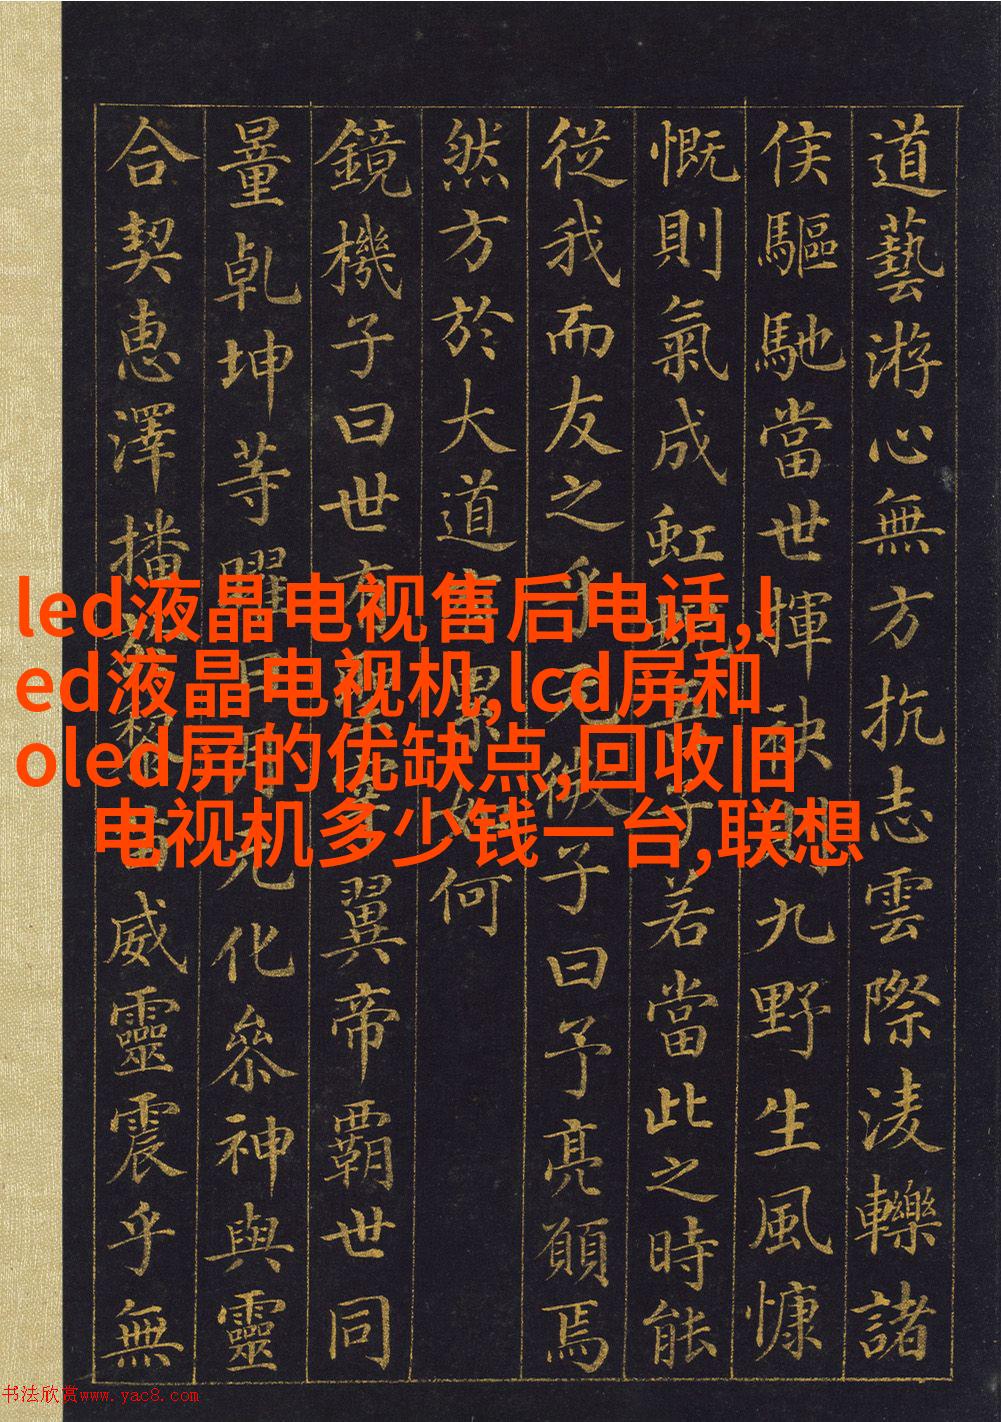 道藝游心無方抗志雲際淩轢諸
侯驅馳當世揮袂則九野生風慷
慨則氣成虹蜺吾子若當此之時能
從我而友之乎玄微子曰予亮願焉
然方於大道有累如何
鏡機子曰世有聖宰翼帝霸世同
量乾坤等曜日月玄化參神與靈
合契惠澤播於黎苗威靈震乎無
led液晶电视售后电话,l
ed液晶电视机,lcd屏和
oled屏的优缺点,回收旧
电视机多少钱一台,联想
书法欣赏www.yac8.com